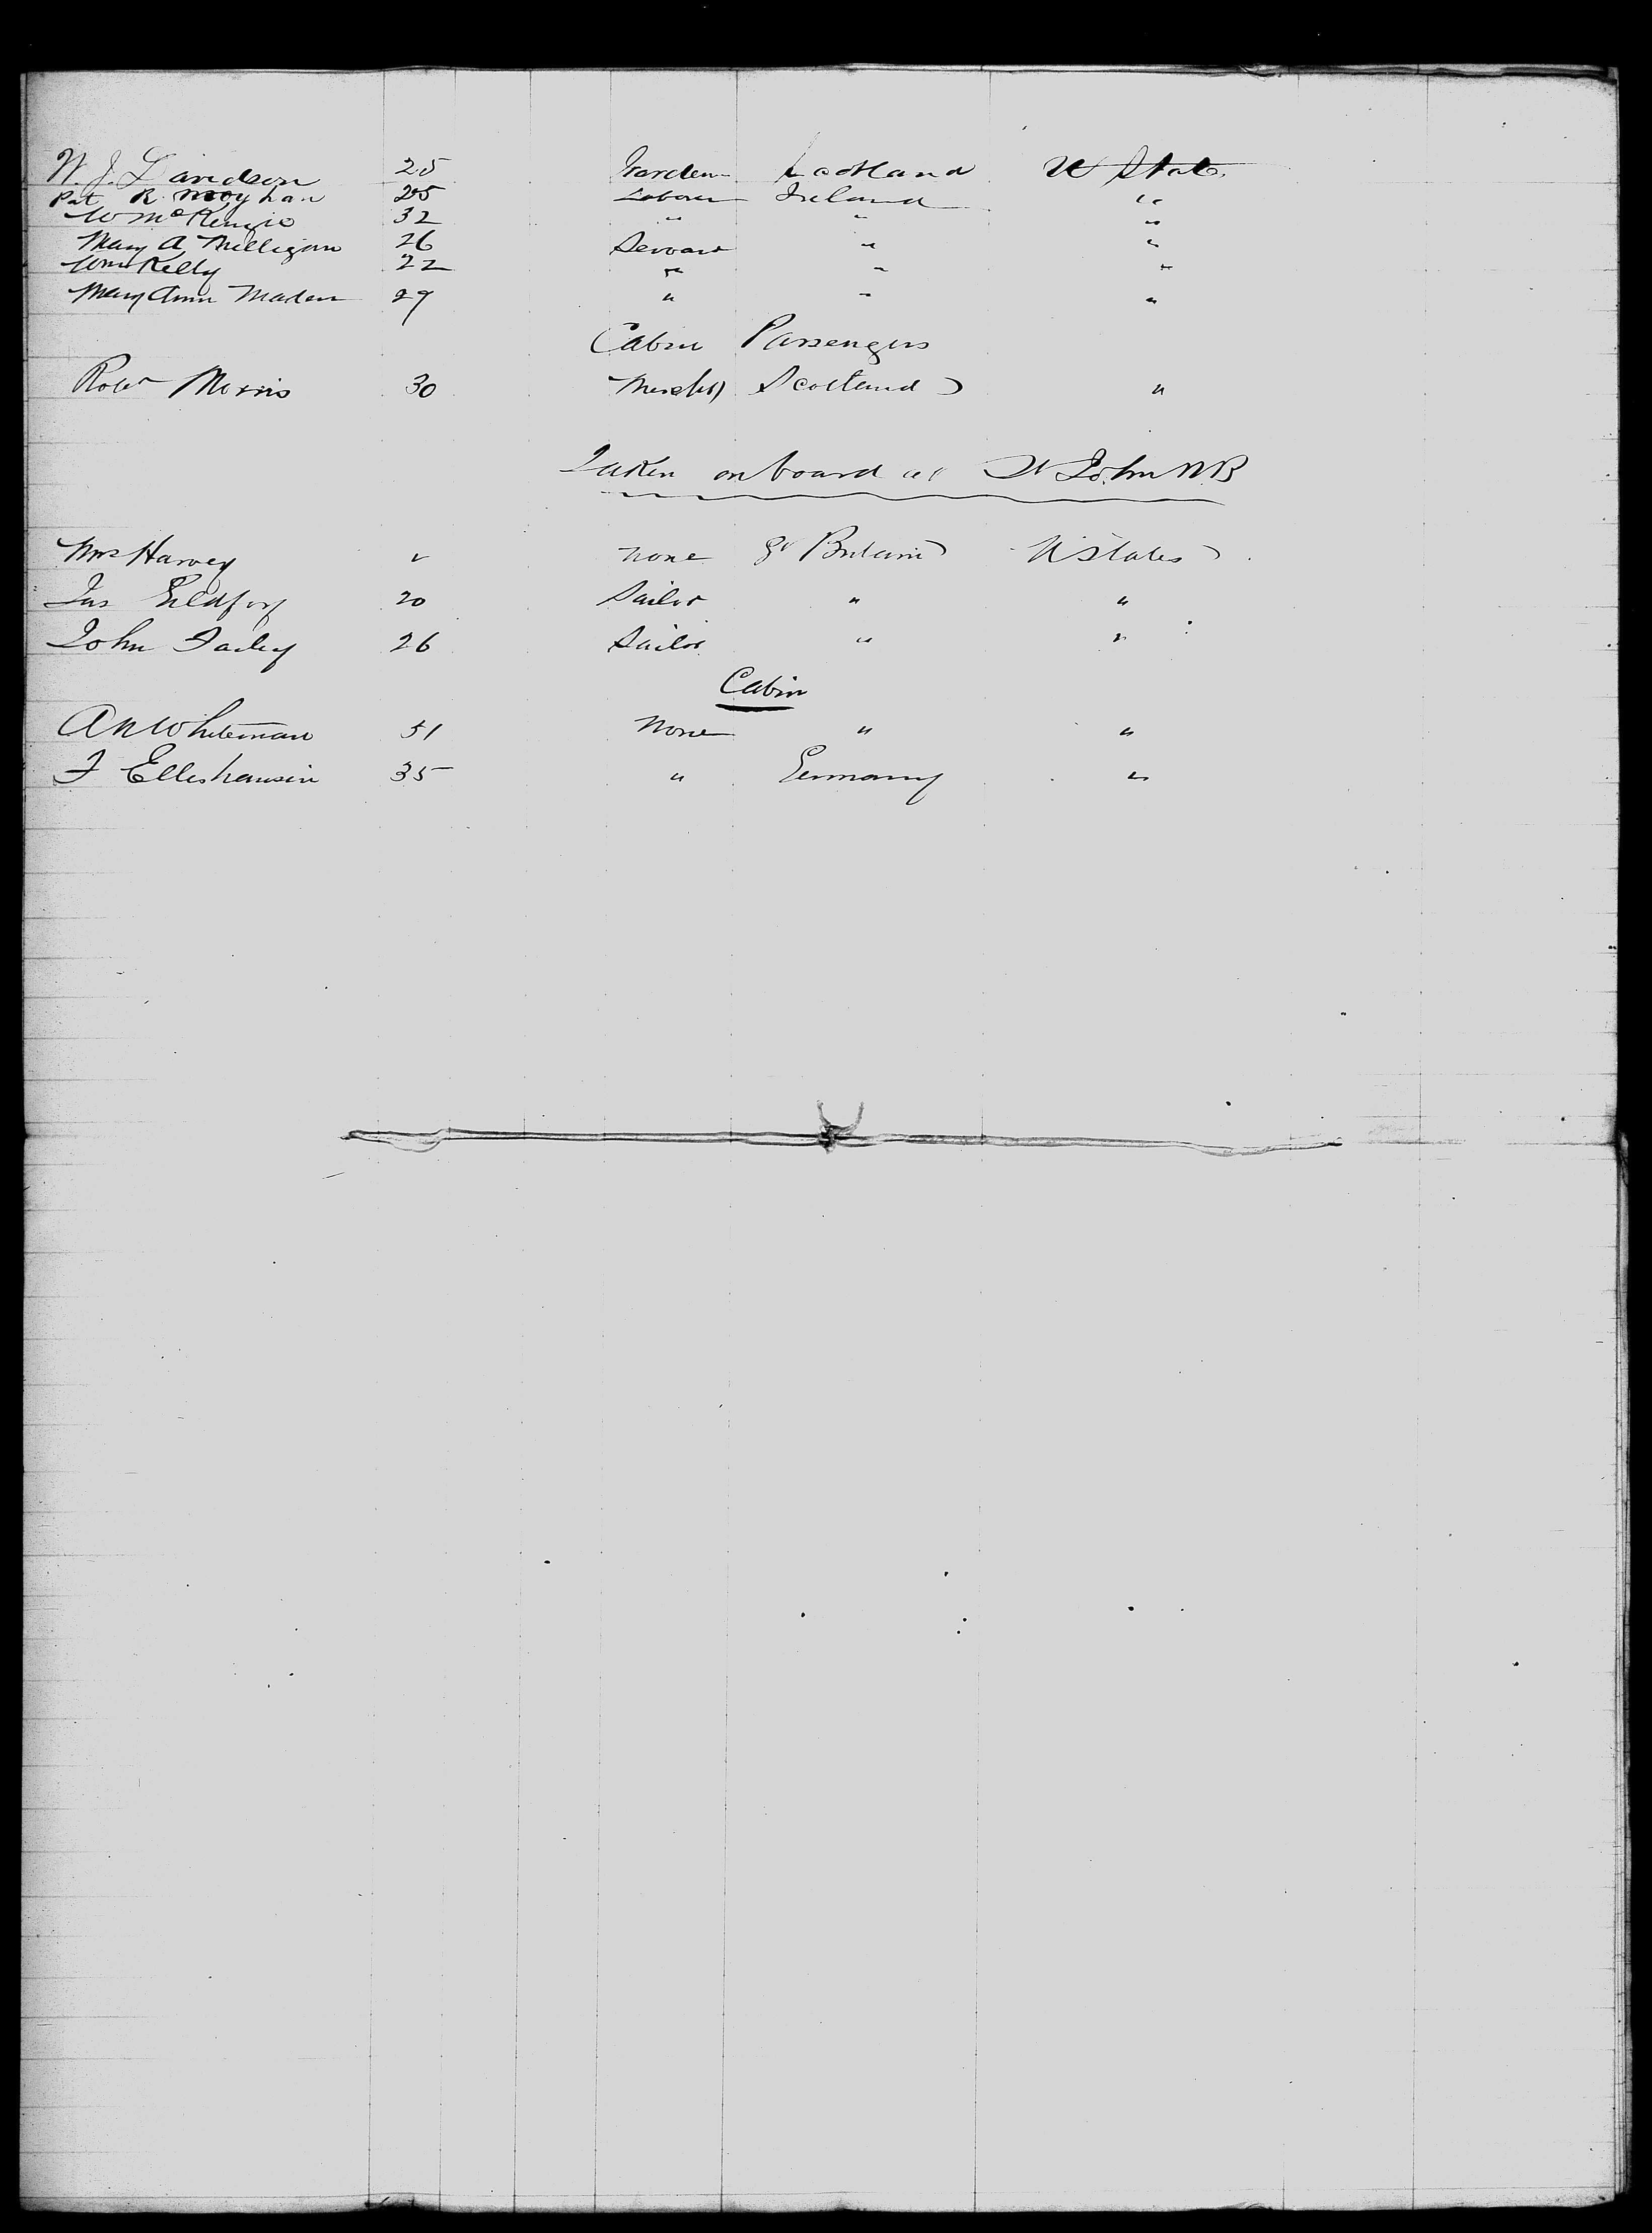 W. J. Davidson 25 Garden Scotland U State
Pat R. Moyhan 25 Laborer Ireland " "
W McKenzie 32 " " "
Mary A Milligan 26 Servant " "
Wm Kelly 22 " " "
Mary Ann Maden 29 " " "
Cabin Passengers
Robt Morris 30 Mercht Scotland "
Taken on board at St John NB
Mrs Harvey none Gt Britain U States
Jas 20 Sailor " "
John 26 Sailor " "
Cabin
A N Whiteman 51 None " "
F Elleshausin 35 " Germany "